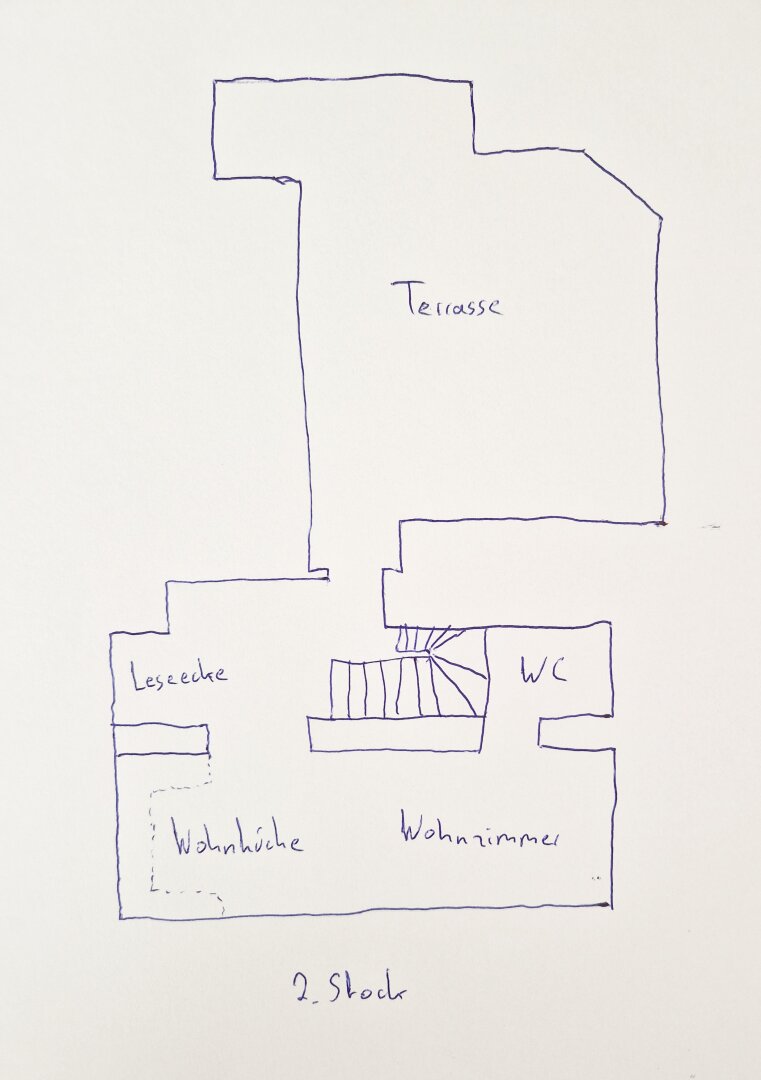 Terrasse
Leseecke
WC
Wohnküche
Wohnzimmer
2. Stock